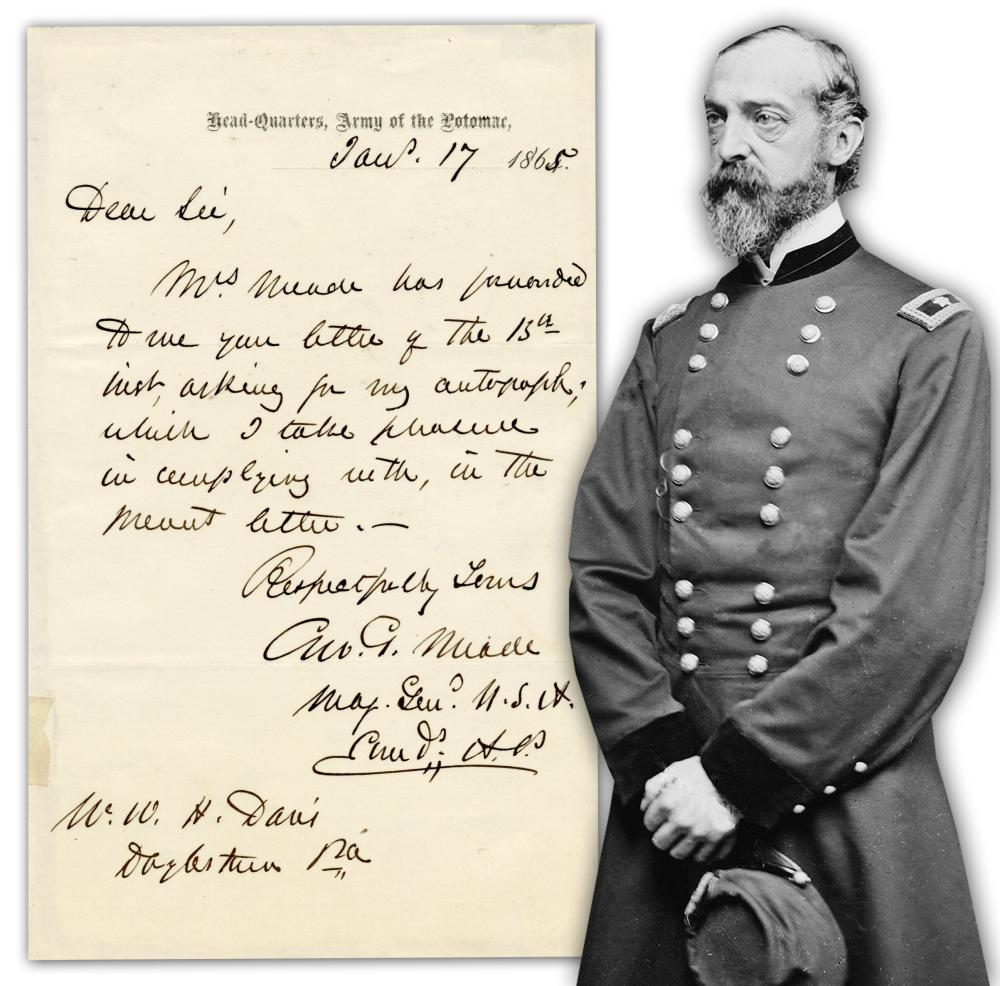 Head-Quarters, Army of the Potomac,
Jany. 17 1865.
Dear Sir,
Mrs Meade has forwarded
to me your letter of the 13th
inst, asking for my autograph,
which I take pleasure
in complying with, in the
present letter.—
Respectfully Yours
Geo. G. Meade
Maj. Genl. U.S.A.
Comdg. A.P.
Mr. W. H. Davis
Doylestown Pa